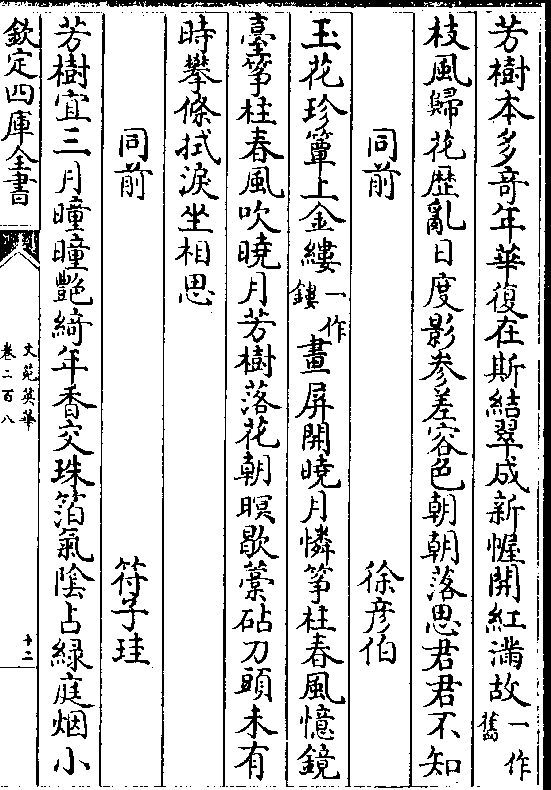 芳樹本多奇年華復在斯結翠成新幄開紅滿故一作舊
枝風歸花歴亂日度影参差容色朝朝落思君君不知
同前 徐彦伯
玉花珍簟上金縷一作鏤畫屏開曉月憐筝柱春風憶鏡
臺筝柱春風吹曉月芳樹落花朝暝歇藁砧刀頭未有
時攀條拭淚坐相思
同前 符子珪
芳樹宜三月曈曈艶綺年香交珠箔氣陰占緑庭烟小
欽定四庫全書
文苑英華
卷二百八
十二